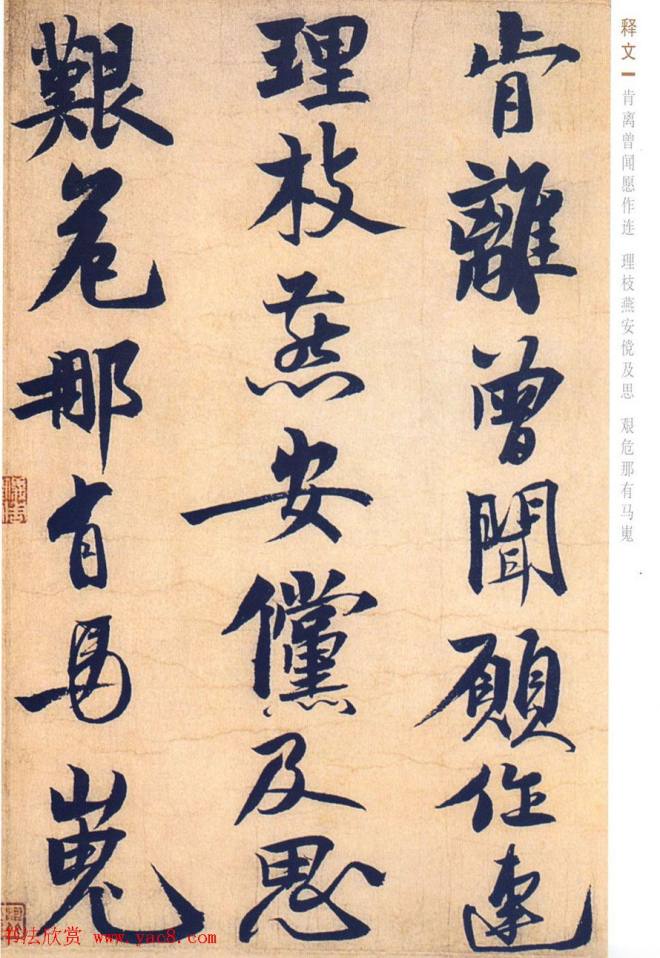 肯離曾聞願作連
理枝燕安儻及思
艱危那有馬嵬
释文
肯离曾闻愿作连 理枝燕安傥及思 艰危那有马嵬
书法欣赏 www.yac8.com